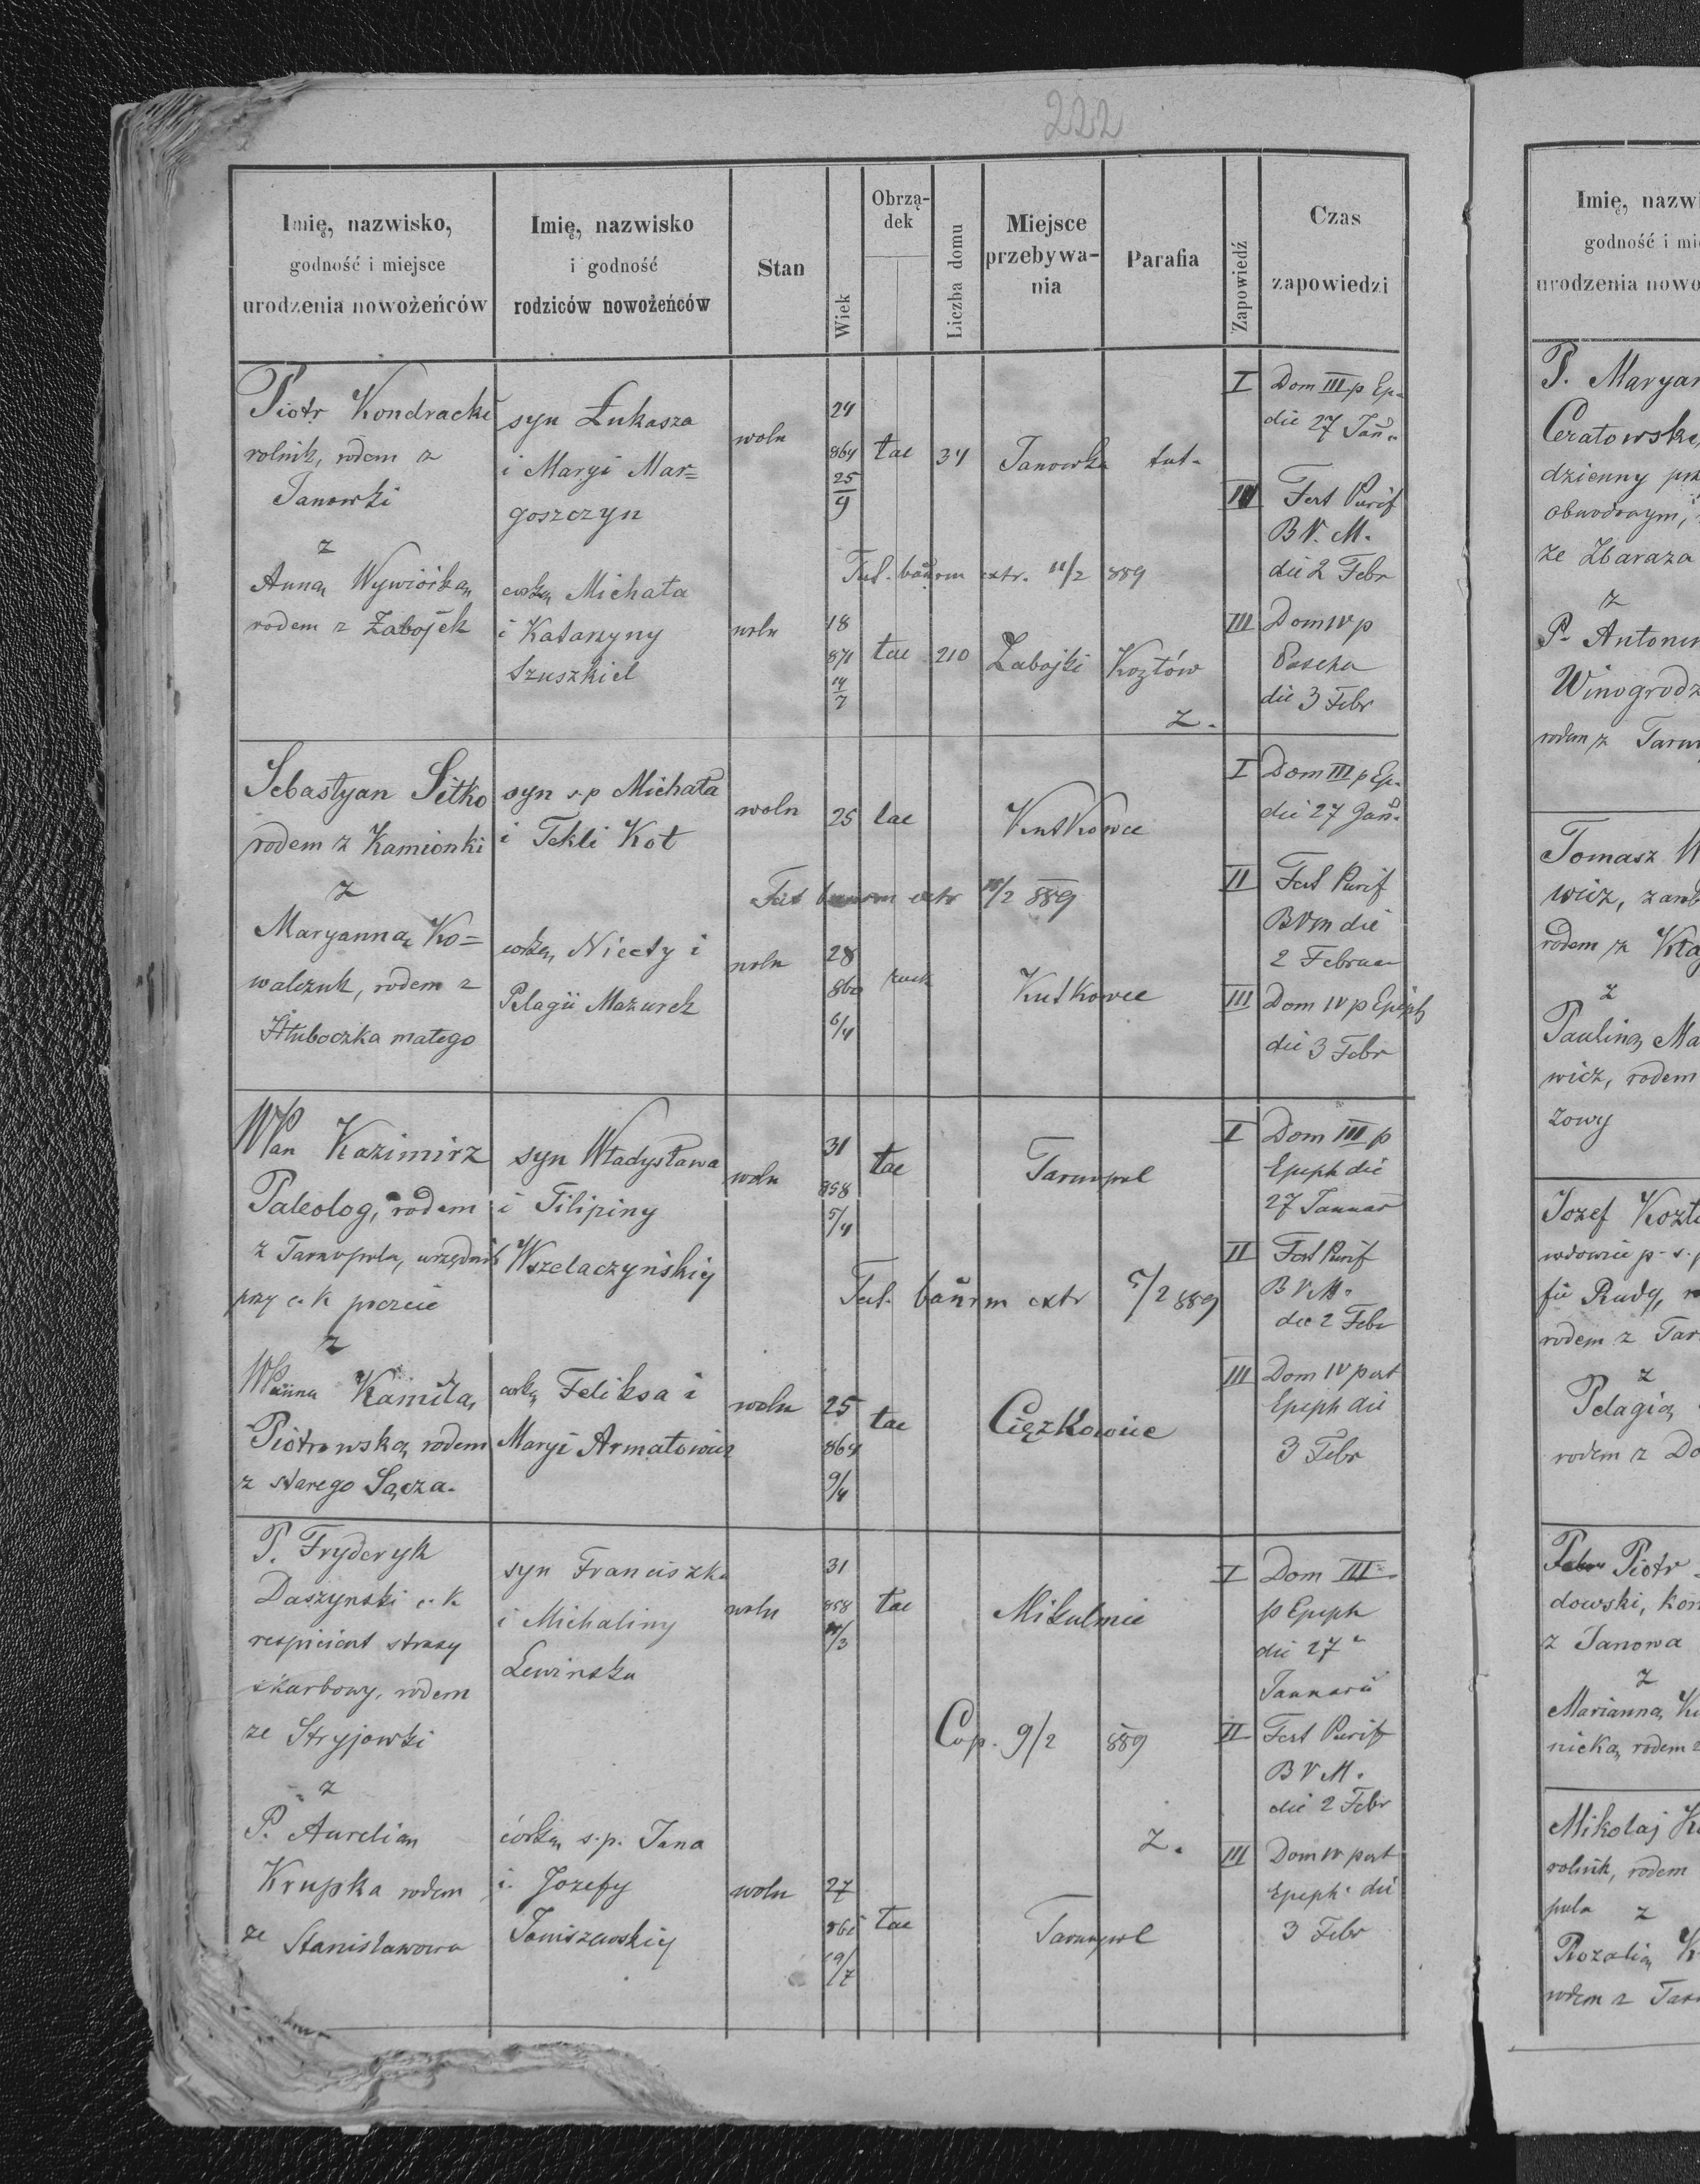 222
Imię, nazwisko,
godność i miejsce
urodzenia nowożeńców
Imię, nazwisko
i godność
rodziców nowożeńców
Stan
Wiek
Obrzą-
dek
Liczba domu
Miejsce
przebywa-
nia
Parafia
Zapowiedź
Czas
zapowiedzi
Piotr Kondracki
rolnik, rodem z
Janowki
z
Anną Wywiórką
rodem z Zabojek
syn Łukasza
i Maryi Mar=
goszczyn
córką Michała
i Katarzyny
Szuszkiel
woln
24
864
25
9
lac
34
Janowka
tut.
Test. bannm extr. 11/2 889
woln
18
871
14
7
lac
210
Zabojki
Kozłów
Z.
I
Dom III p Ep.
die 27 Jan.
II
Fest Purif
B V. M.
die 2 Febr
III
Dom IV p
Pascha
die 3 Febr
Sebastyan Sitko
rodem z Kamionki
z
Maryanną Ko=
walczuk, rodem z
Hłuboczka małego
syn s.p Michała
i Tekli Kot
córką Nicety i
Pelagii Mazurek
woln
25
lac
Kutkowce
Test bannm extr /2 889
woln
28
860
6/4
Kutkowce
I
Dom III p Ep.
die 27 Jan.
II
Fest Purif
BVM die
2 Februar
III
Dom IV p Epiph
die 3 Febr
WPan Kazimirz
Paleolog, rodem
z Tarnopola, urzędnik
przy c. k poczcie
z
WPanna Kamilą
Piotrowską, rodem
z starego Sącza.
syn Władysława
i Filipiny
Wszelaczyńskiej
córką Feliksa i
Maryi Armatowicz
woln
31
858
5/4
lac
Tarnopol
Test. bannm extr 5/2 889
woln
25
864
9/4
lac
Ciężkowice
I
Dom III p
Epiph die
27 Januar
II
Fest Purif
B V M.
die 2 Febr
III
Dom IV post
Epiph die
3 Febr
P. Fryderyk
Daszynski c. k
respicient strazy
skarbowy, rodem
ze Stryjowki
z
P. Aurelią
Krupka rodem
ze Stanisławowa
syn Franciszka
i Michaliny
Lewinska
córką s.p. Jana
i Jozefy
Janiszewskiej
woln
31
858
/3
lac
Mikulnice
Cop. 9/2 889
Z.
woln
27
861
19/7
lac
Tarnopol
I
Dom III
p Epiph
die 27
Januarii
II
Fest Purif
B V M.
die 2 Febr
III
Dom IV post
Epiph. die
3 Febr
Imię, nazw
godność i mie
urodzenia nowo
P. Maryan
Ceratowski,
dzienny prz
obwodowym,
ze Zbaraza
z
P. Antonin
Winogrodz
rodem z Tarno
Tomasz W
wicz, zamb
rodem z
z
Pauliną Ma
wicz, rodem
zowy
Jozef Kozło
wdowiec p. s.p
fii Rudy,
rodem z Tar
z
Pelagią
rodem z Do
Piotr
dowski, kon
z Janowa
z
Marianną
nicką rodem z
Mikolaj
rolnik, rodem
pola
z
Rozalią K
rodem z Tarn